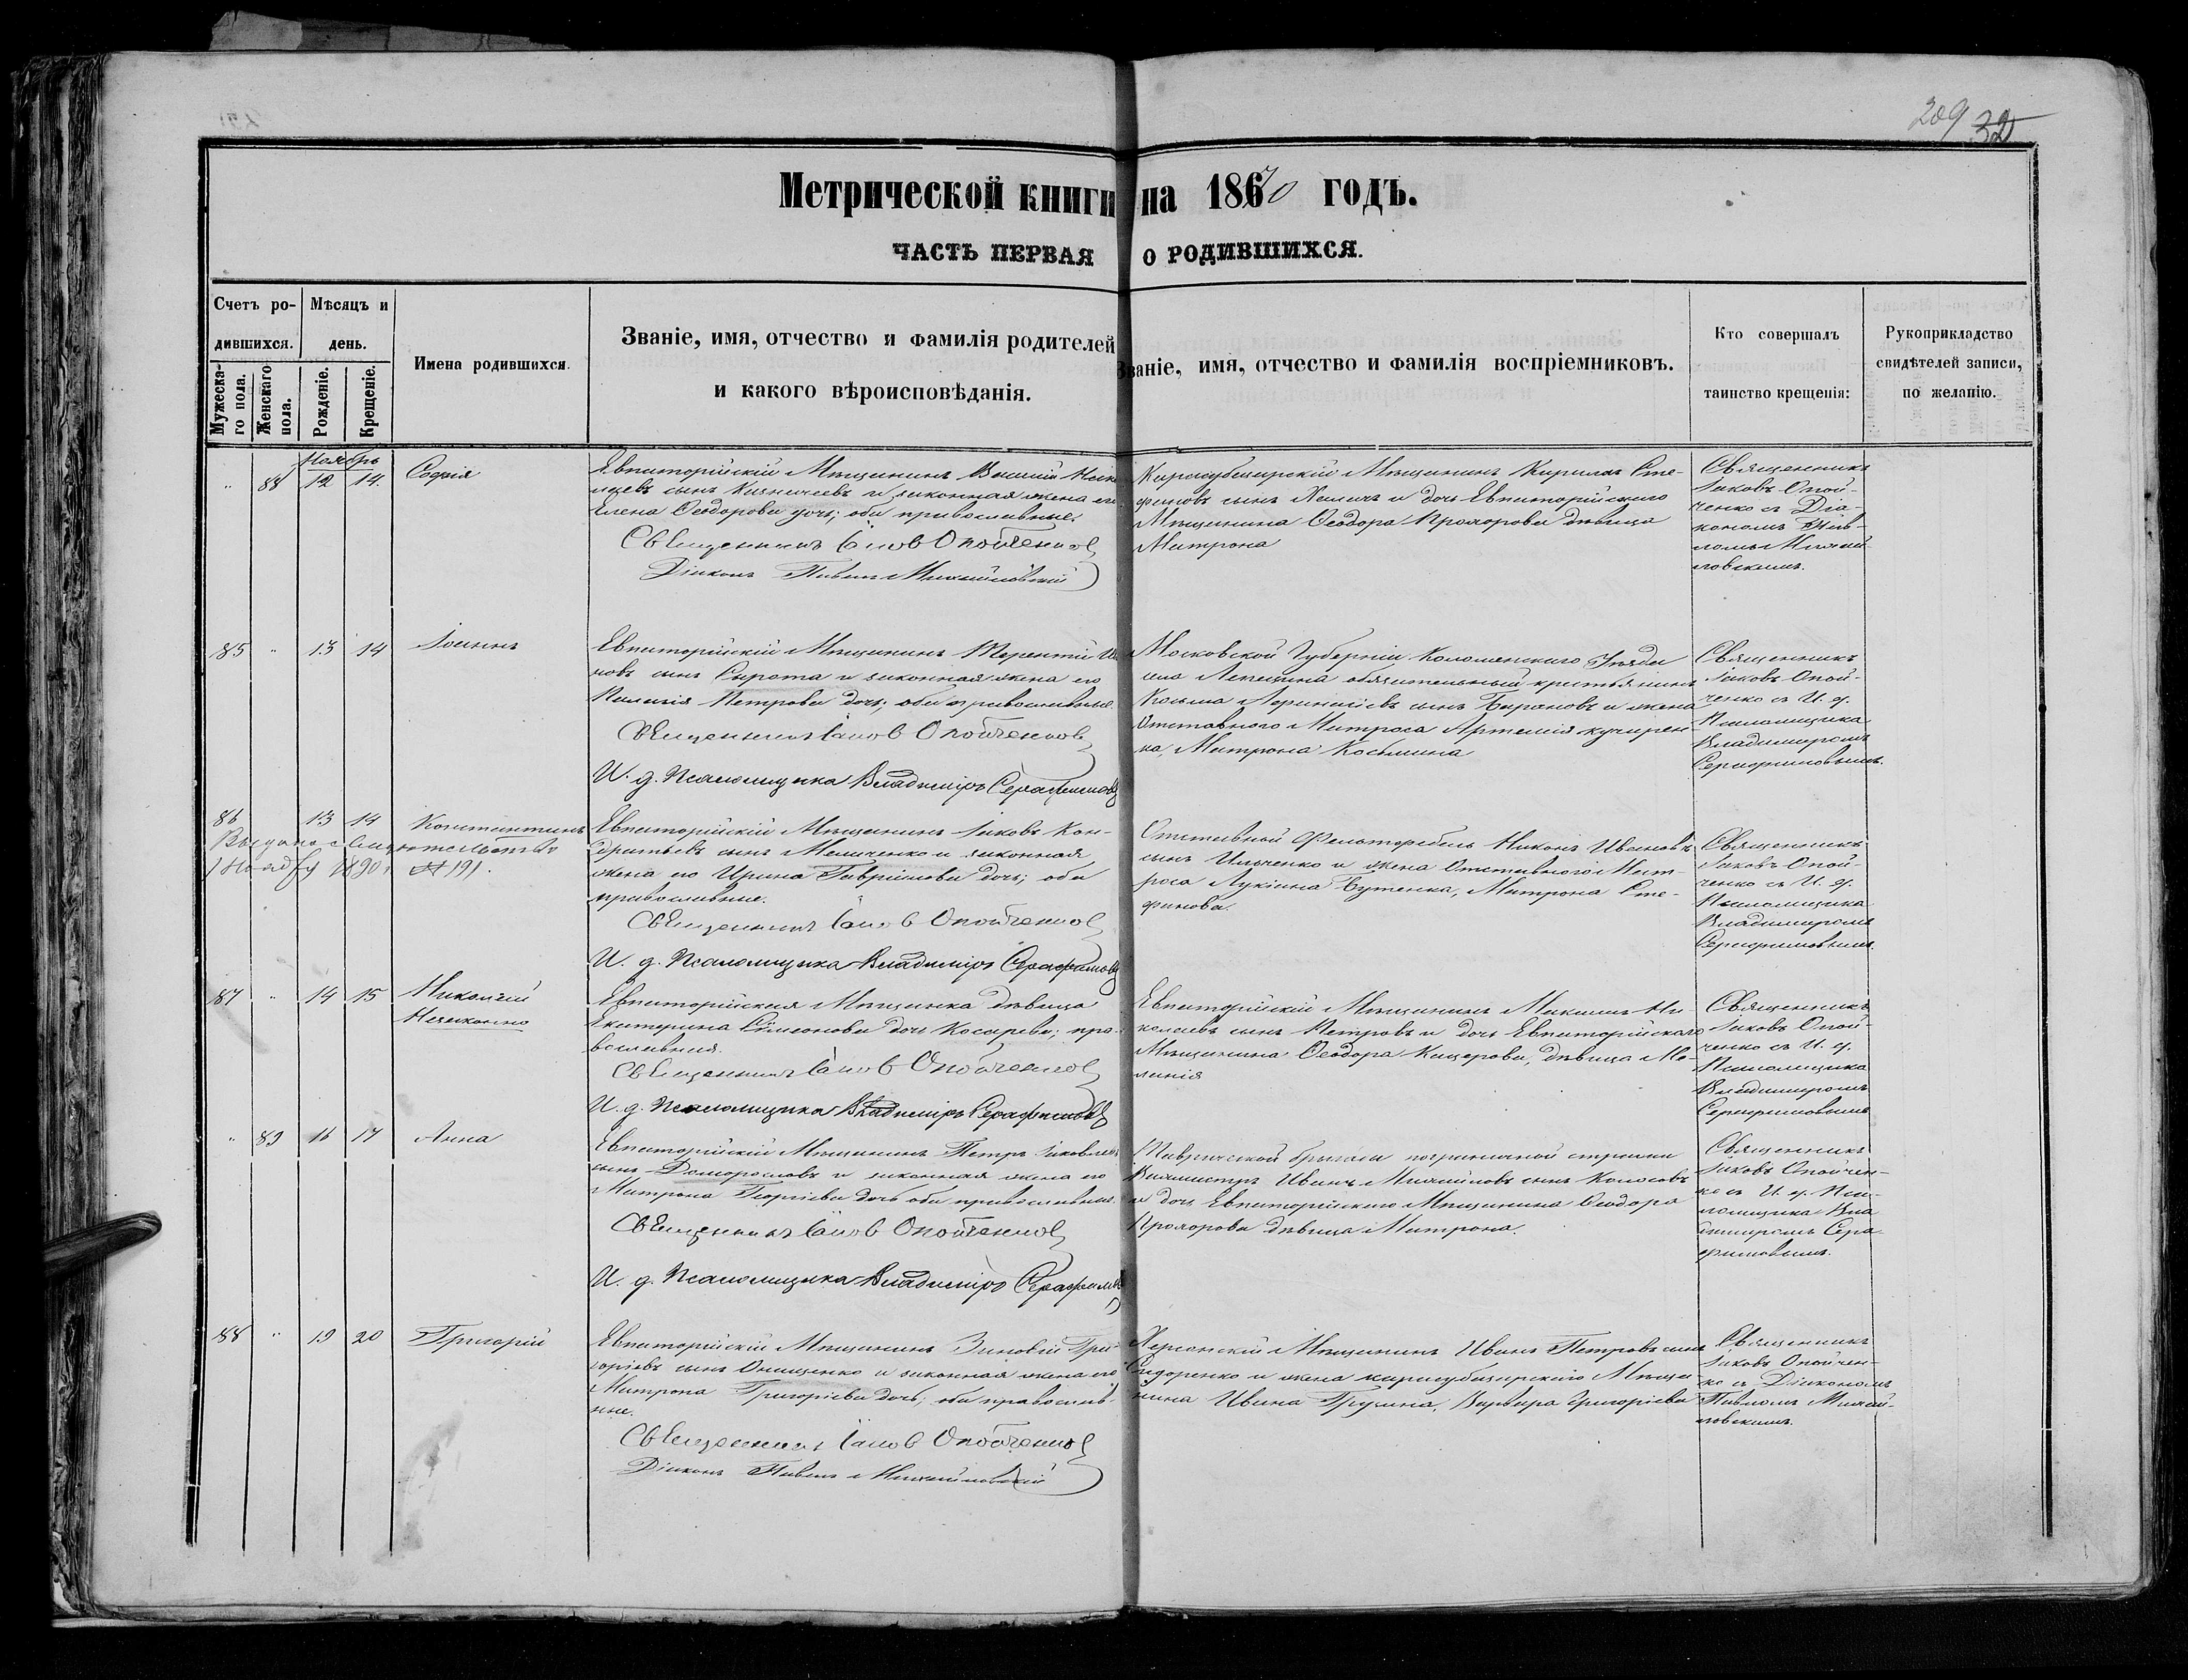 209 32
Метрической книги на 1870 годъ.
ЧАСТЬ ПЕРВАЯ О РОДИВШИХСЯ.
Счетъ родившихся.
Мужескаго пола.
Женскаго пола.
Мѣсяцъ и день.
Рожденіе.
Крещеніе.
Имена родившихся.
Званіе, имя, отчество и фамилія родителей
и какого вѣроисповѣданія.
Званіе, имя, отчество и фамилія воспріемниковъ.
Кто совершалъ
таинство крещенія:
Рукоприкладство
свидѣтелей записи,
по желанію.
Ноябрь
" 88 12 14. Софія
Евпаторійскій Мѣщанинъ Василій
сынъ Казначеевъ и законная жена его
Елена Ѳеодорова дочь; оба православные.
Священникъ Іаковъ Опойченко
Діаконъ Павелъ Михайловскій
Карасубазарскій Мѣщанинъ Кирилъ Сте-
фановъ сынъ и дочь Евпаторійскаго
Мѣщанина Ѳеодора Прохорова дѣвица
Матрона
Священникъ
Іаковъ Опой-
ченко съ Діа-
кономъ Пав-
ломъ Михай-
ловскимъ.
85 " 13 14 Іоаннъ
Евпаторійскій Мѣщанинъ Терентій
сынъ Сырота и законная жена его
Пелагія Петрова дочь; оба православные.
Священникъ Іаковъ Опойченко
И. д. Псаломщика Владиміръ Серафимовъ
Московской Губерніи Коломенскаго Уѣзда
села обязательный крестьянинъ
Козьма сынъ Барановъ и жена
Отставного Матроса Артемія
Матрона Косьмина
Священникъ
Іаковъ Опой-
ченко съ И. д.
Псаломщика
Владиміромъ
Серафимовымъ.
86 13 14 Константинъ
Выдано Свидетельство
1890 г. № 191.
Евпаторійскій Мѣщанинъ Іаковъ Кон-
дратьевъ сынъ Мельниченко и законная
жена его Ирина Гавріилова дочь; оба
православные.
Священникъ Іаковъ Опойченко
И. д. Псаломщика Владиміръ Серафимовъ
Отставной Фельдфебель Никонъ Ивановъ
сынъ Ильченко и жена Отставного Мат-
роса Лукіана Бутенка, Матрона Сте-
фанова.
Священникъ
Іаковъ Опой-
ченко съ И. д.
Псаломщика
Владиміромъ
Серафимовымъ.
87 " 14 15 Николай
Незаконно
Евпаторійская Мѣщанка дѣвица
Екатерина Симеонова дочь Косырева; пра-
вославная.
Священникъ Іаковъ Опойченко
И. д. Псаломщика Владиміръ Серафимовъ
Евпаторійскій Мѣщанинъ Максимъ Ни-
колаевъ сынъ Петровъ и дочь Евпаторійскаго
Мѣщанина Ѳеодора Кацерова, дѣвица Ме-
ланія
Священникъ
Іаковъ Опой-
ченко съ И. д.
Псаломщика
Владиміромъ
Серафимовымъ
" 89 16 17 Анна
Евпаторійскій Мѣщанинъ Петръ Іаковлевъ
сынъ Доморословъ и законная жена его
Матрона Георгіева дочь оба православные.
Священникъ Іаковъ Опойченко
И. д. Псаломщика Владиміръ Серафимовъ
Таврической бригады пограничной стражи
Вахмистръ Иванъ Михайловъ сынъ Колосовъ
и дочь Евпаторійскаго Мѣщанина Ѳеодора
Прохорова дѣвица Матрона.
Священникъ
Іаковъ Опойчен-
ко съ И. д. Пса-
ломщика Вла-
диміромъ Сера-
фимовымъ.
88 " 19 20 Григорій
Евпаторійскій Мѣщанинъ Зиновій Гри-
горіевъ сынъ Онищенко и законная жена его
Матрона Григоріева дочь, оба православ-
ные.
Священникъ Іаковъ Опойченко
Діаконъ Павелъ Михайловскій
Херсонскій Мѣщанинъ Иванъ Петровъ сынъ
Сидоренко и жена карасубазарскаго Мѣща-
нина Ивана Грузина, Варвара Григоріева
Священникъ
Іаковъ Опойчен-
ко съ Діакономъ
Павломъ Михай-
ловскимъ.